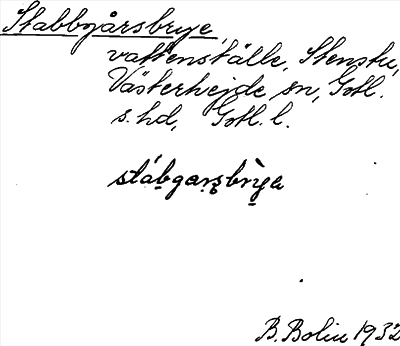 Stabbgårsbrye,
vattenställe, Stenstu,
Västerhejde sn, Gotl.
s. hd, Gotl. l.
stábgarsbrỳa
B. Bolin 1932